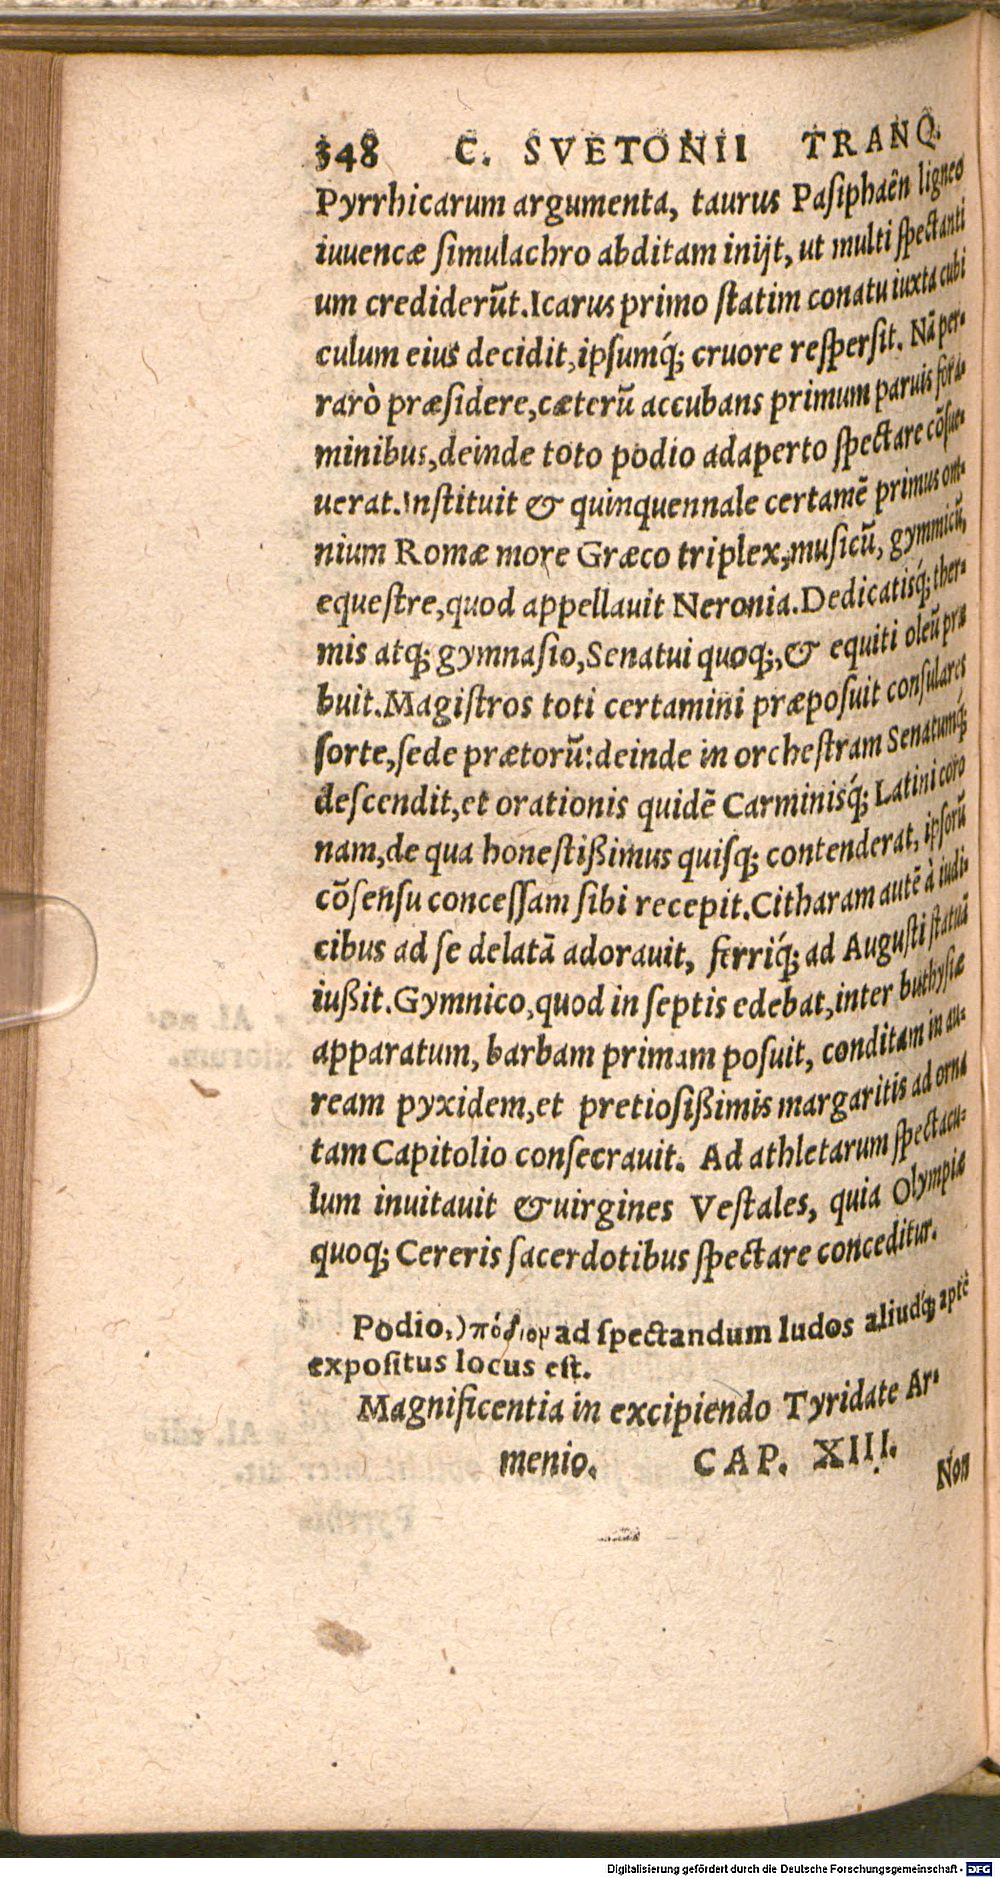 348 C. SVETONII TRANQ.
Pyrrhicarum argumenta, taurus Pasiphaên ligneo
iuuencæ simulachro abditam inijt, ut multi spectanti
um crediderũt. Icarus primo statim conatu iuxta cubi
culum eius decidit, ipsumq́; cruore respersit. Nã per-
rarò præsidere, cæterũ accubans primum paruis fora-
minibus, deinde toto podio adaperto spectare cõsue-
uerat. Instituit & quinquennale certamẽ primus om-
nium Romæ more Græco triplex, musicũ, gymnicũ,
equestre, quod appellauit Neronia. Dedicatisq́; ther-
mis atq; gymnasio, Senatui quoq;, & equiti oleũ præ
buit. Magistros toti certamini præposuit consulares
sorte, sede prætorũ: deinde in orchestram Senatumq́;
descendit, et orationis quidẽ Carminisq́; Latini coro
nam, de qua honestißimus quisq; contenderat, ipsorũ
cõsensu concessam sibi recepit. Citharam autẽ à iudi-
cibus ad se delatã adorauit, ferriq́; ad Augusti statuã
iußit. Gymnico, quod in septis edebat, inter buthysiæ
apparatum, barbam primam posuit, conditam in au-
ream pyxidem, et pretiosißimis margaritis ad orna
tam Capitolio consecrauit. Ad athletarum spectacu-
lum inuitauit & uirgines Vestales, quia Olympiæ
quoq; Cereris sacerdotibus spectare conceditur.
Podio,) πόδιον ad spectandum ludos aliudq́; aptè
expositus locus est.
Magnificentia in excipiendo Tyridate Ar-
menio. CAP. XIII.
Non
Digitalisierung gefördert durch die Deutsche Forschungsgemeinschaft - DFG